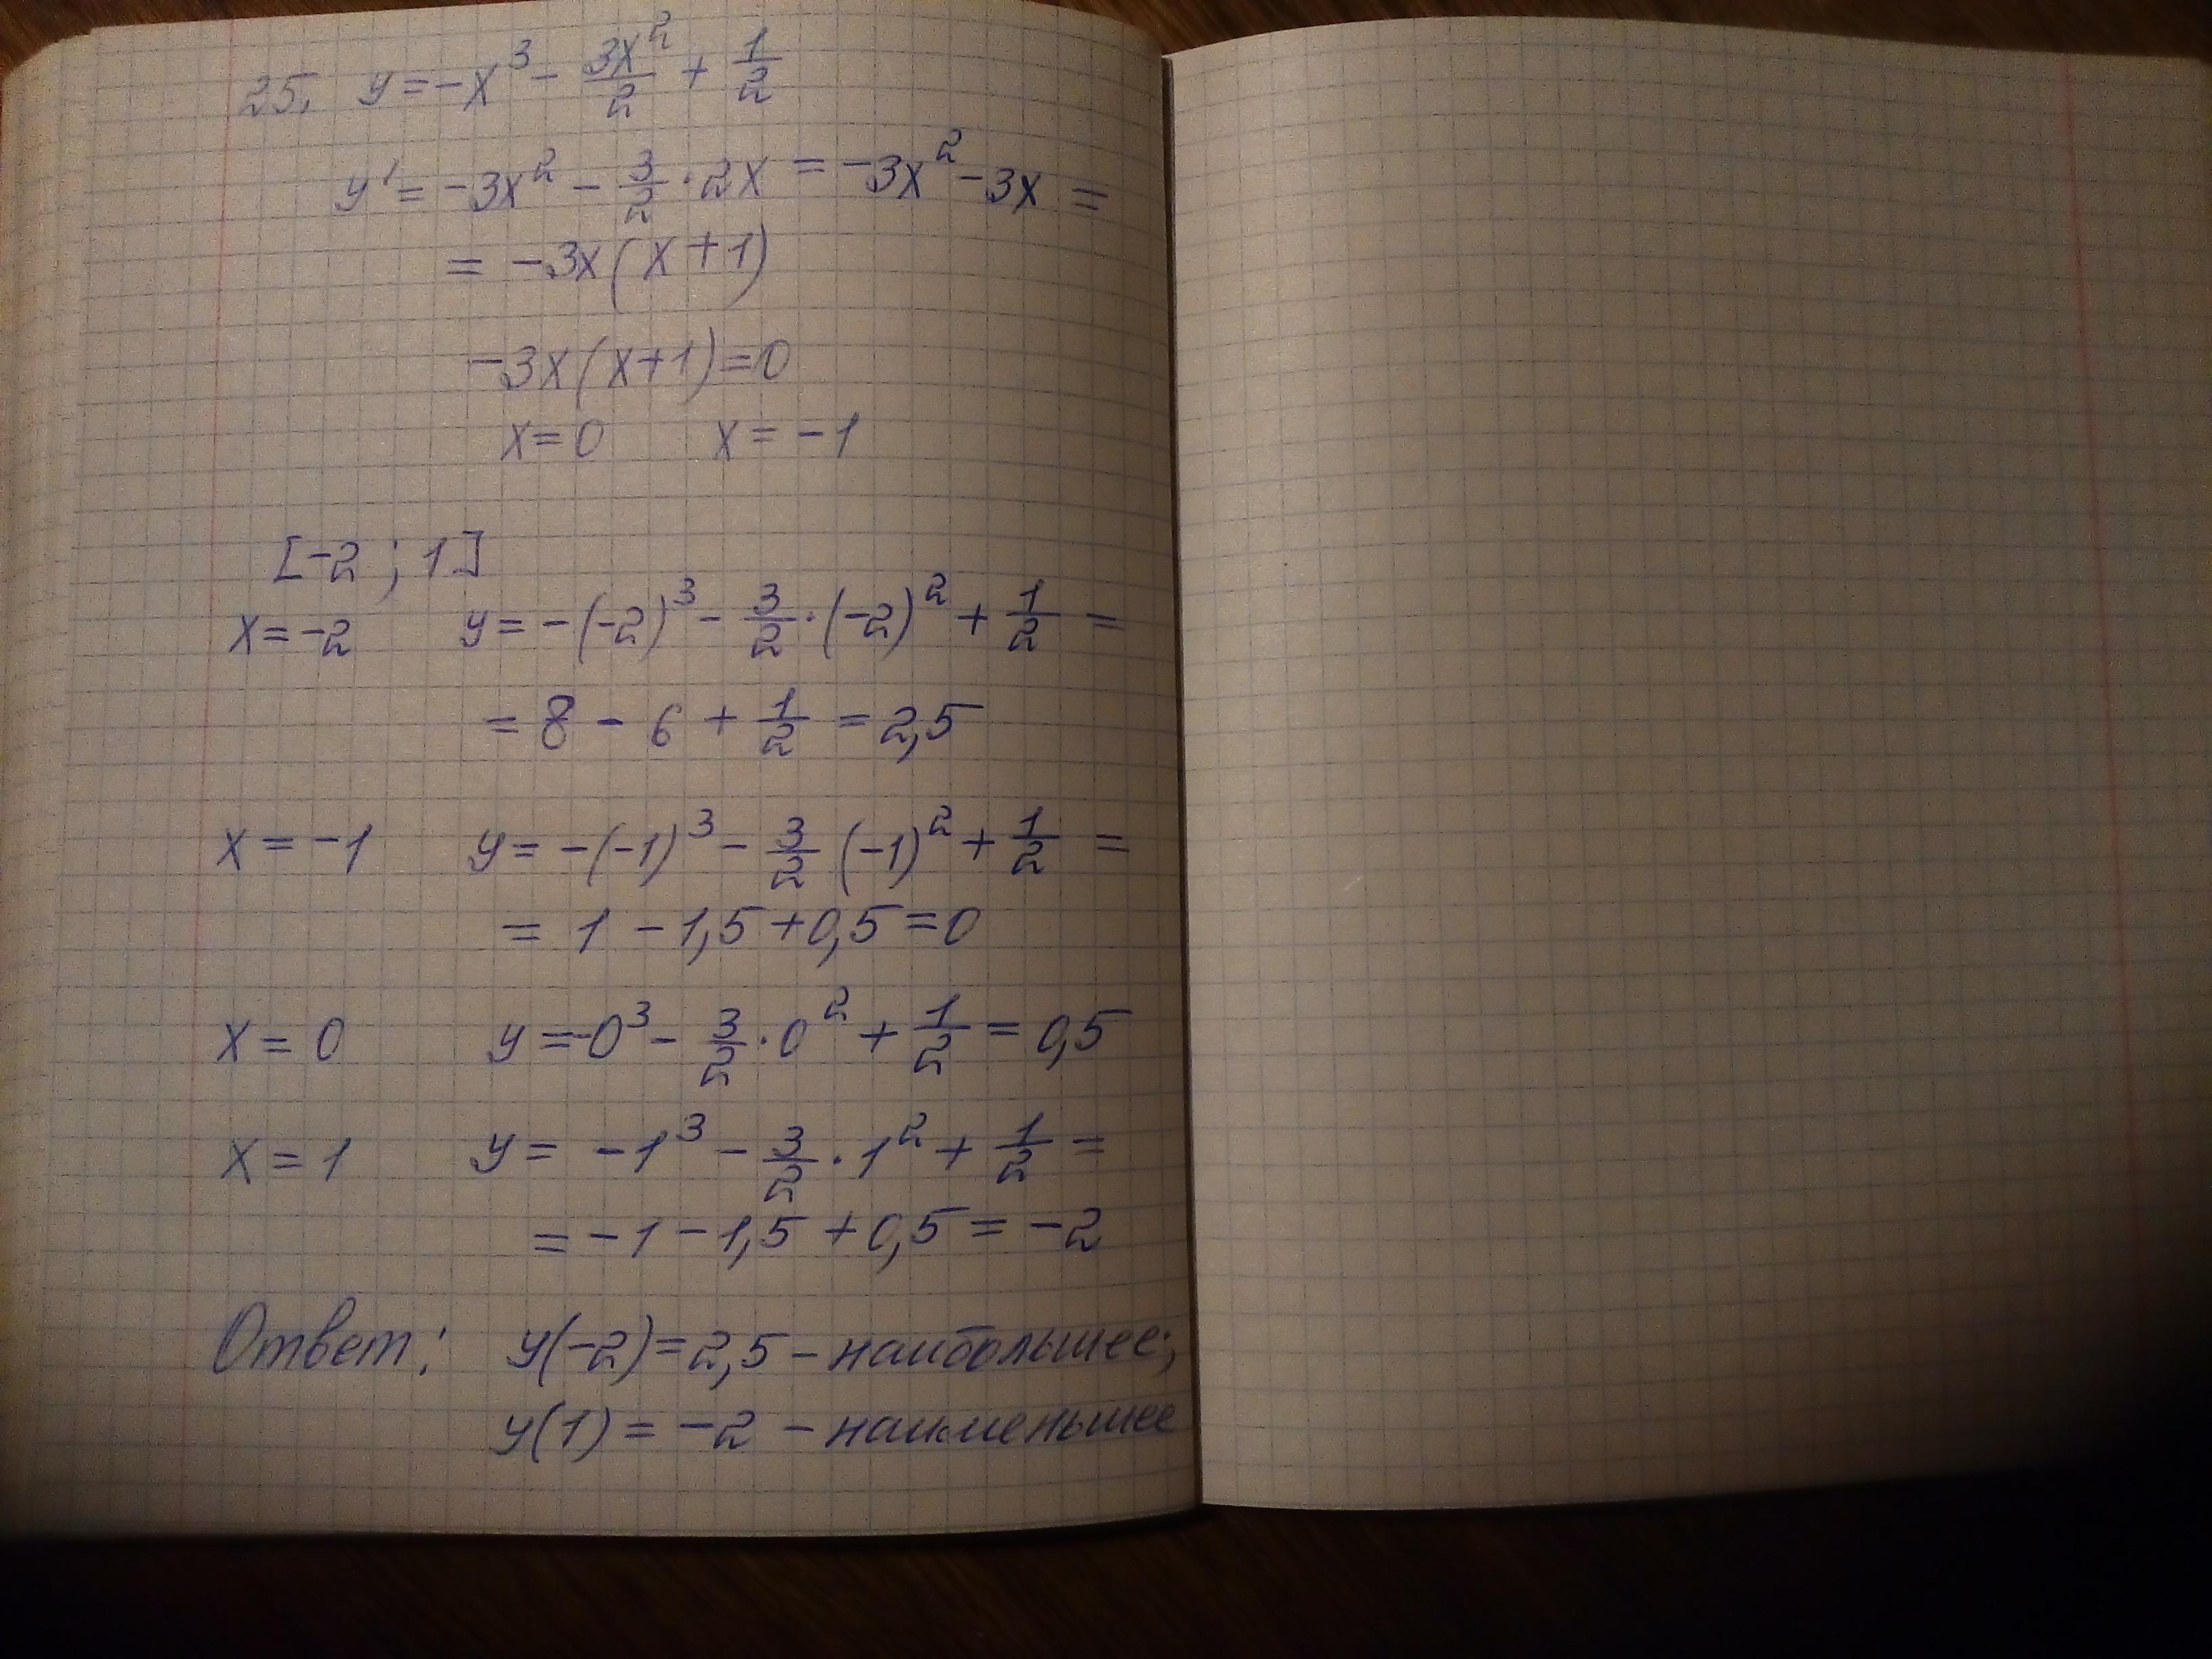 25. y = -x³ - 3x²/2 + 1/2
y' = -3x² - 3/2 · 2x = -3x² - 3x =
= -3x(x+1)
-3x(x+1)=0
x=0 x=-1
[-2 ; 1]
x=-2 y=-(-2)³ - 3/2 · (-2)² + 1/2 =
= 8 - 6 + 1/2 = 2,5
x=-1 y=-(-1)³ - 3/2 (-1)² + 1/2 =
= 1 - 1,5 + 0,5 = 0
x=0 y=-0³ - 3/2 · 0² + 1/2 = 0,5
x=1 y= -1³ - 3/2 · 1² + 1/2 =
= -1 - 1,5 + 0,5 = -2
Ответ: y(-2)=2,5 - наибольшее;
y(1) = -2 - наименьшее